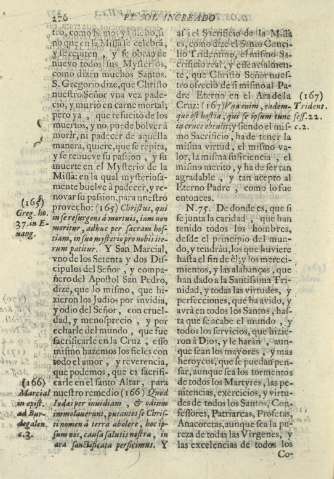 276 EL SOL INCREADO
tto, como se vio, y lo dicho, si
no que en la Missa se celebra,
y se repiten, y se obran de
nuevo todos sus Mysterios,
como dizen muchos Santos.
S. Gregorio dize, que Christo
nuestro Señor vna vez pade-
ciò, y murio en carne mortal;
pero ya, que resucitò de los
muertos, y no puede bolver à
morir, ni padecer de aquella
manera, quiere, que se repita,
y se renueve su passion, y su
muerte en el Mysterio de la
Missa: en la qual mysteriosa-
mente buelve à padecer, y re-
novar su passion, para nuestro
provecho: (165) Christus, qui
in se resurgens à mortuis, iam non
moritur, adhuc per sacram hos-
tiam, in suo mysterio pro nobis ite-
rum patitur. Y San Marcial,
vno de los Setenta y dos Dis-
cipulos del Señor, y compa-
ñero del Apostol San Pedro,
dize, que lo mismo, que hi-
zieron los Judios por invidia,
y odio del Señor, con cruel-
dad, y menosprecio, y por
echarle del mundo, que fue
sacrificarle en la Cruz, esso
mismo hazemos los fieles con
todo el amor, y reverencia,
que podemos, que es sacrifi-
carle en el santo Altar, para
nuestro remedio (166) Quod
Iudæi per invidiam, & odium
immolaverunt, putantes se Chris-
ti nomen à terra abolere, hoc ip-
sum nos, causa salutis nostræ, in
ara sanctificata perficimus. Y
(165)
Greg. ho.
37. in E-
uang.
(166)
Marcial
in epist.
ad Bur-
degalen.
c. 3.
assi el Sacrificio de la Missa
es, como dize el Santo Conci-
lio Tridentino, el mismo Sa-
crificio real, y essencialmen-
te, que Christo Señor nues-
tro ofrecio de si mismo al Pa-
dre Eterno en el Ara de la
Cruz: (167) Vna enim, eadem-
que est hostia, que se ipsum tunc
in cruce obtulit; y siendo el mis-
mo Sacrificio, ha de tener la
misma virtud, el mismo va-
lor, la misma suficiencia, el
mismo merito, y ha de ser tan
agradable, y tan acepto al
Eterno Padre, como lo fue
entonces.
N. 75. De donde es, que si
se junta la caridad, que han
tenido todos los hombres,
desde el principio del mun-
do, y tendràn, los que huviere
hasta el fin de èl; y los mereci-
mientos, y las alabanças, que
han dado à la Santissima Tri-
nidad, y todas las virtudes, y
perfecciones, que ha avido, y
avrà en todos los Santos, has-
ta que se acabe el mundo, y
todos los servicios, que hizie-
ron à Dios, y le haràn, aun-
que sean los mayores, y mas
heroycos, que se puedan pen-
sar, aunque sea los tormentos
de todos los Martyres, las pe-
nitencias, exercicios, y virtu-
des de todos los Santos, Con-
fessores, Patriarcas, Profetas,
Anacoretas, aunque sea la pu-
reza de todas las Virgenes, y
las excelencias de todos los
Co-
(167)
Trident.
sess. 22.
c. 2.